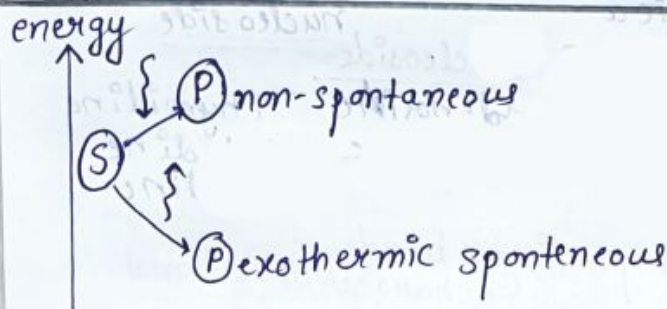 energy
P non-spontaneous
S
P exothermic sponteneous